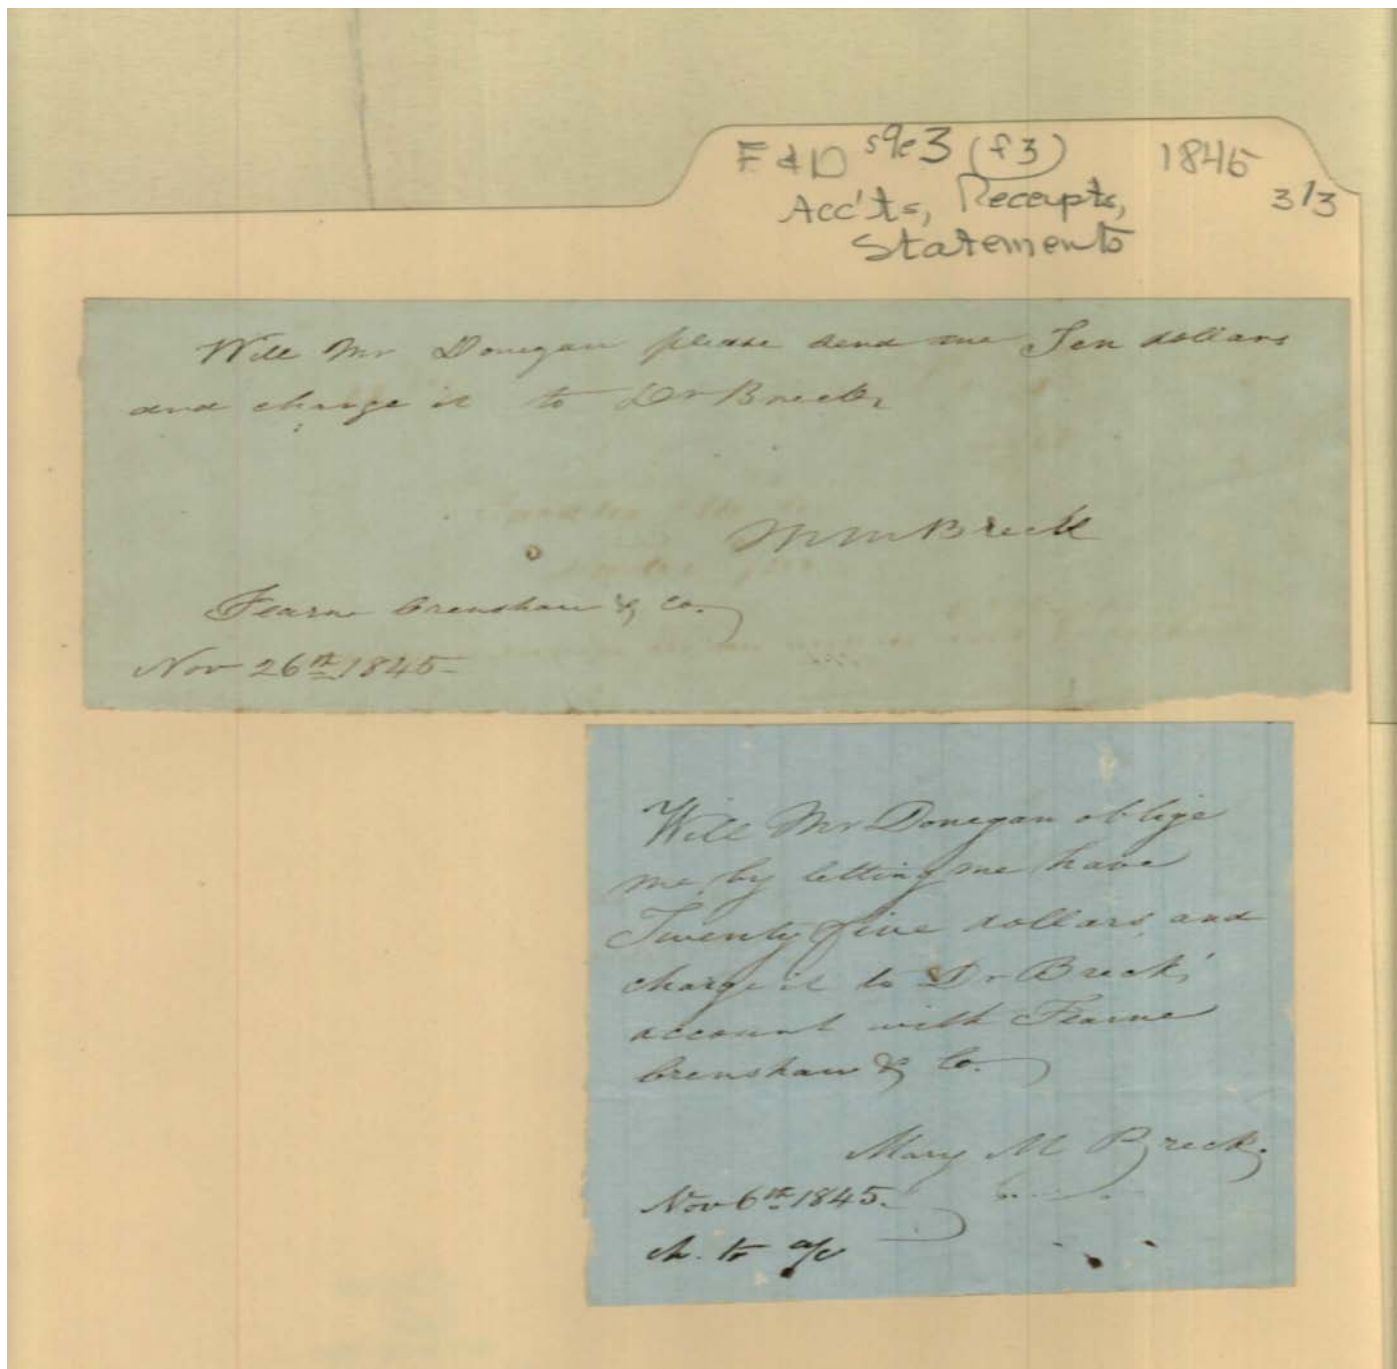 F & D s9e3 (f3) 1845
3/3
Acc'ts, Receipts,
Statements
Will Mr Donegan please send me Ten dollars
and charge it to Dr Breck
M M Breck
Fearn Crenshaw & Co.
Nov 26th 1845
Will Mr Donegan oblige
me by letting me have
Twenty five dollars and
charge it to Dr Breck'
account with Fearne
Crenshaw & Co.
Mary M Breck.
Nov 6th 1845.
ch. to a/c